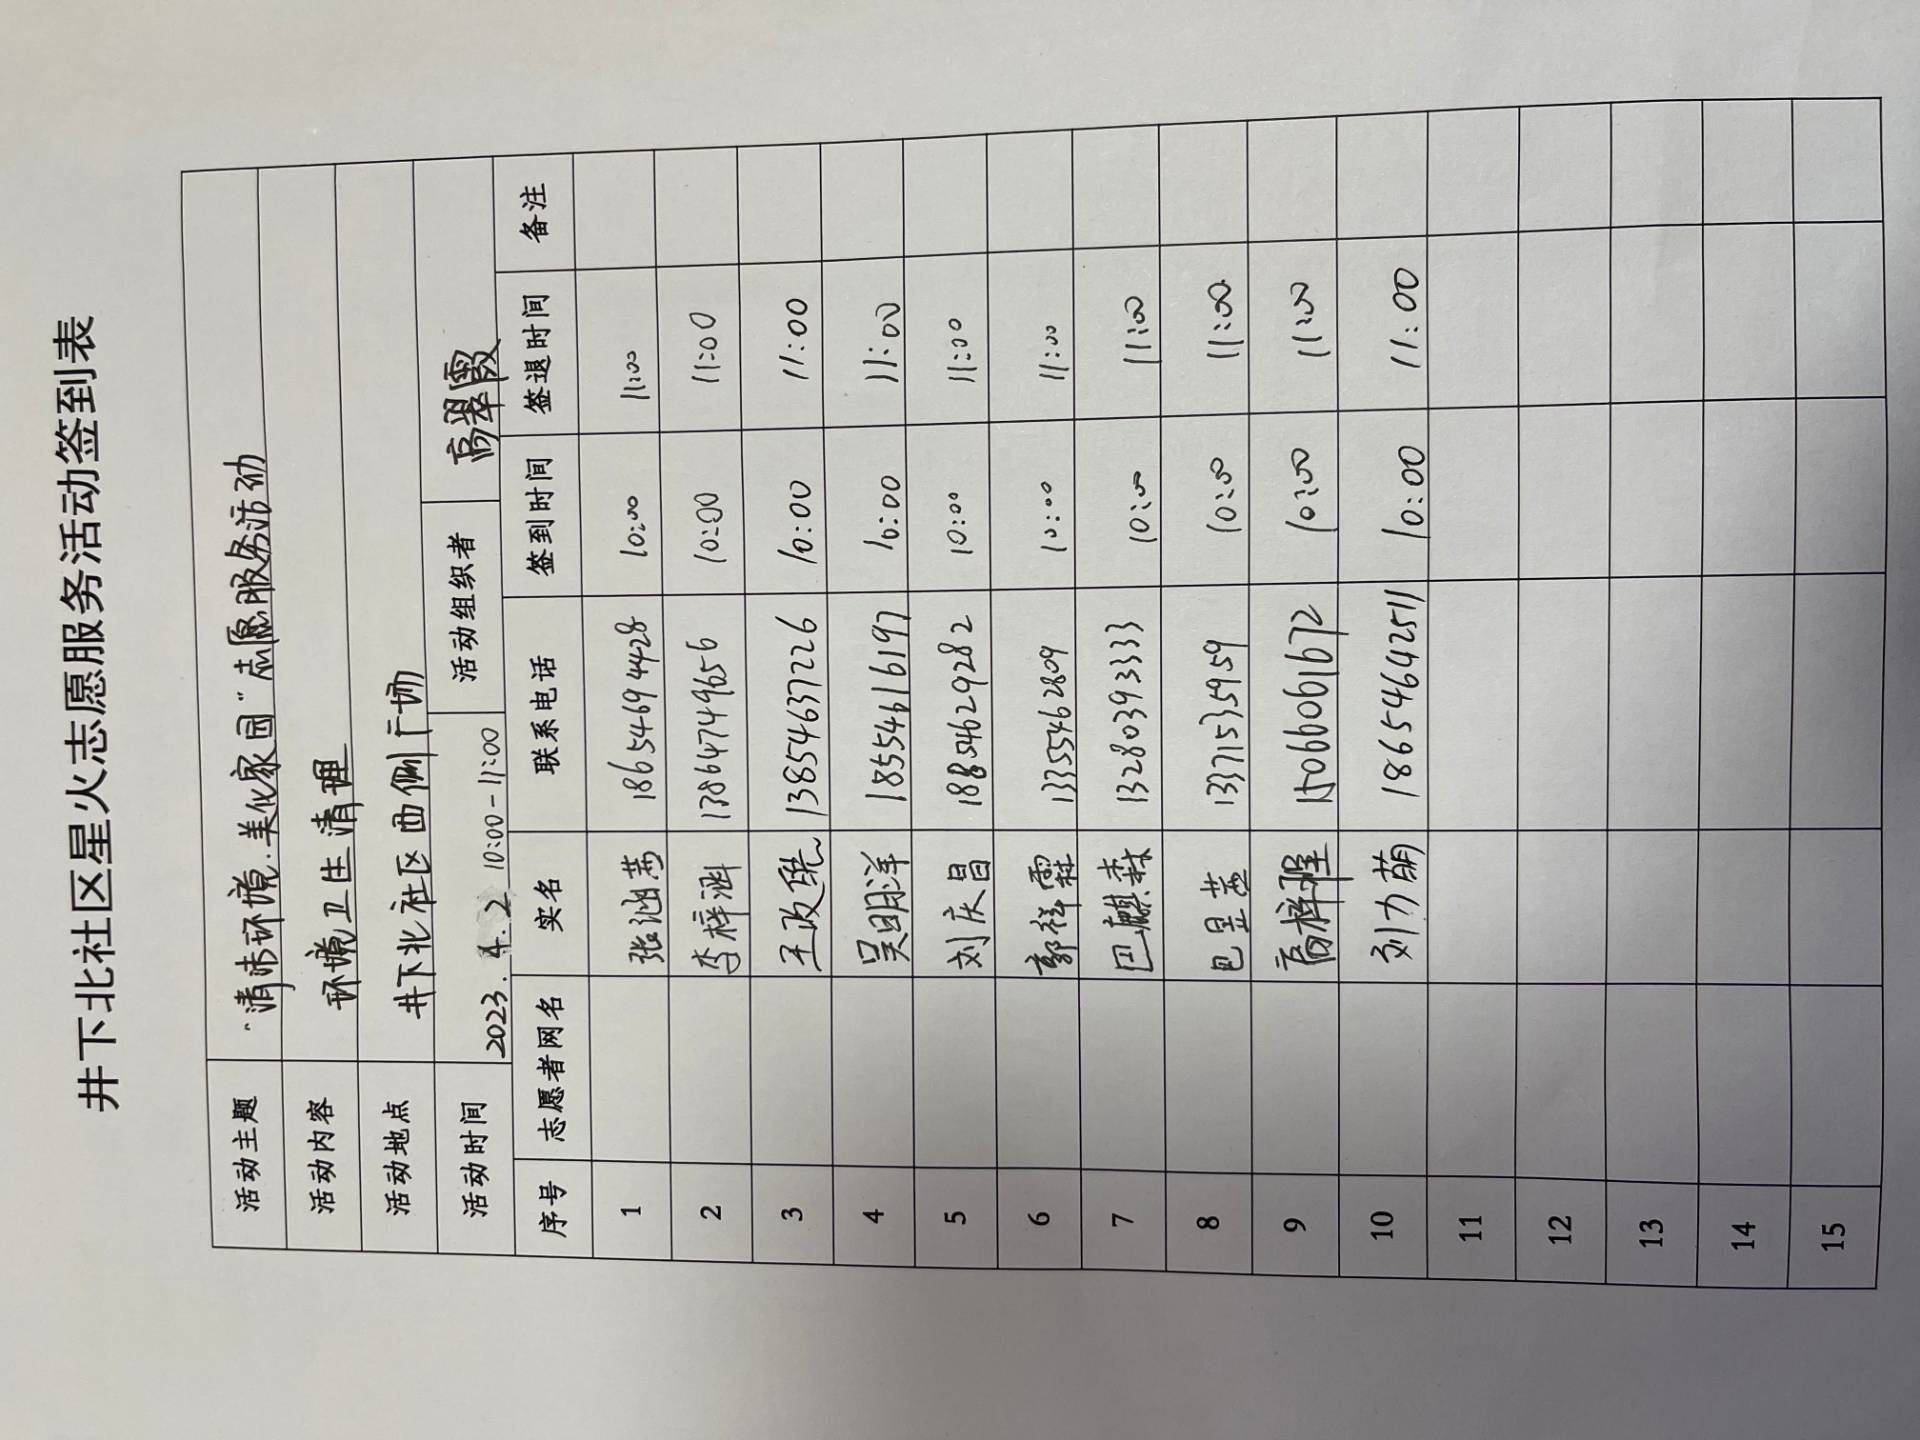 井下北社区星火志愿服务活动签到表
活动主题 "清洁环境.美化家园"志愿服务活动
活动内容 环境卫生清理
活动地点 井下北社区西侧广场
活动时间 2023.4.2 10:00-11:00 活动组织者 高翠霞
序号 志愿者网名 实名 联系电话 签到时间 签退时间 备注
1 张涵茜 18654694428 10:00 11:00
2 李梓涵 13864749656 10:00 11:00
3 王政皓 13854637226 10:00 11:00
4 吴明洋 18554616197 10:00 11:00
5 刘庆昌 18854629282 10:00 11:00
6 郭祥霖 13355462809 10:00 11:00
7 巴麒森 13280393333 10:00 11:00
8 巴昱 13371535959 10:00 11:00
9 高梓程 15066061672 10:00 11:00
10 刘力萌 18654642511 10:00 11:00
11
12
13
14
15